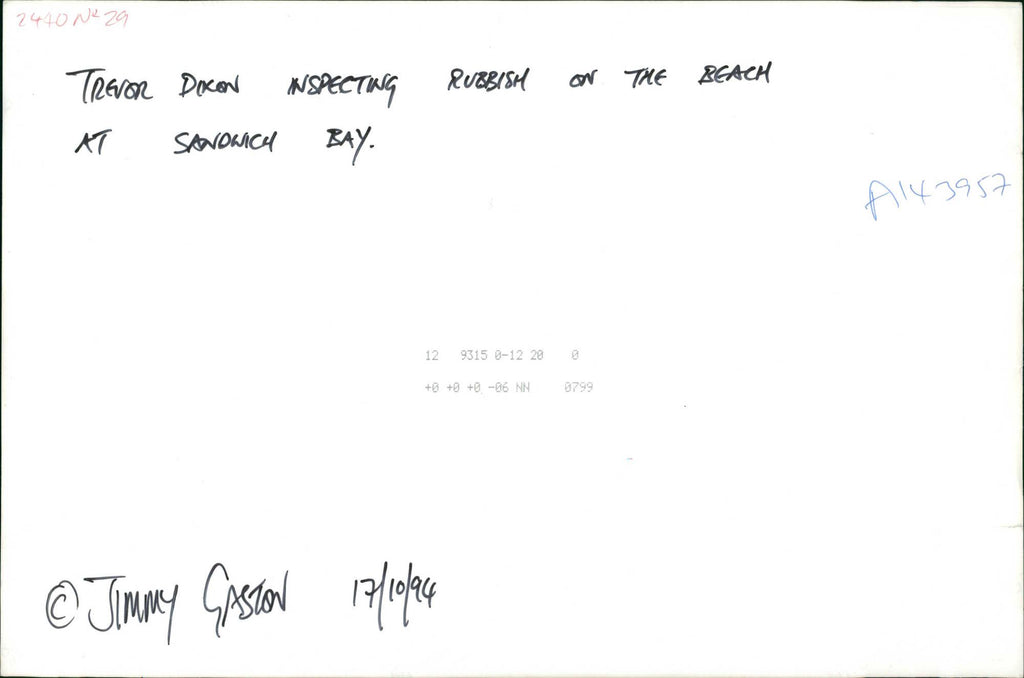 2440 Nº 29
TREVOR DIXON INSPECTING RUBBISH ON THE BEACH
AT SANDWICH BAY.
A143957
12 9315 0-12 20 0
+0 +0 +0 -06 NN 0799
© JIMMY GASTON 17/10/94